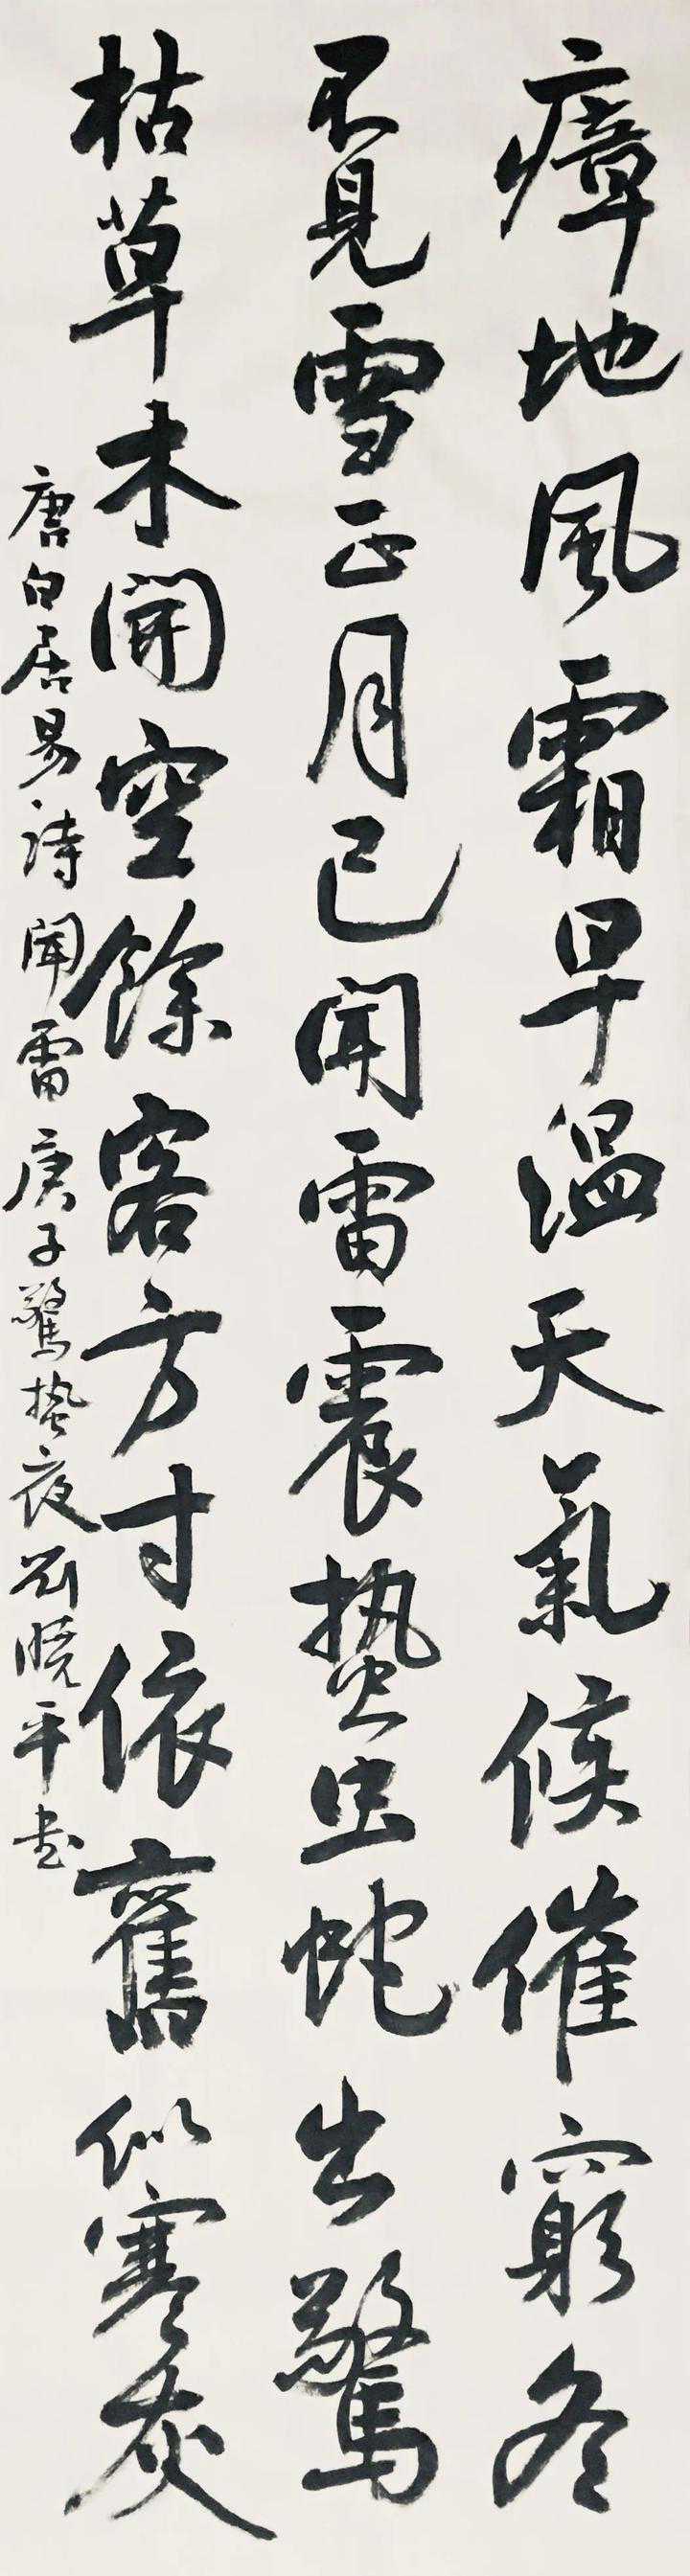 瘴地風霜早温天氣候催窮冬
不見雪正月已聞雷震蟄虫蛇出驚
枯草木開空餘客方寸依舊似寒灰
唐白居易詩聞雷庚子驚蟄夜劉曉平书